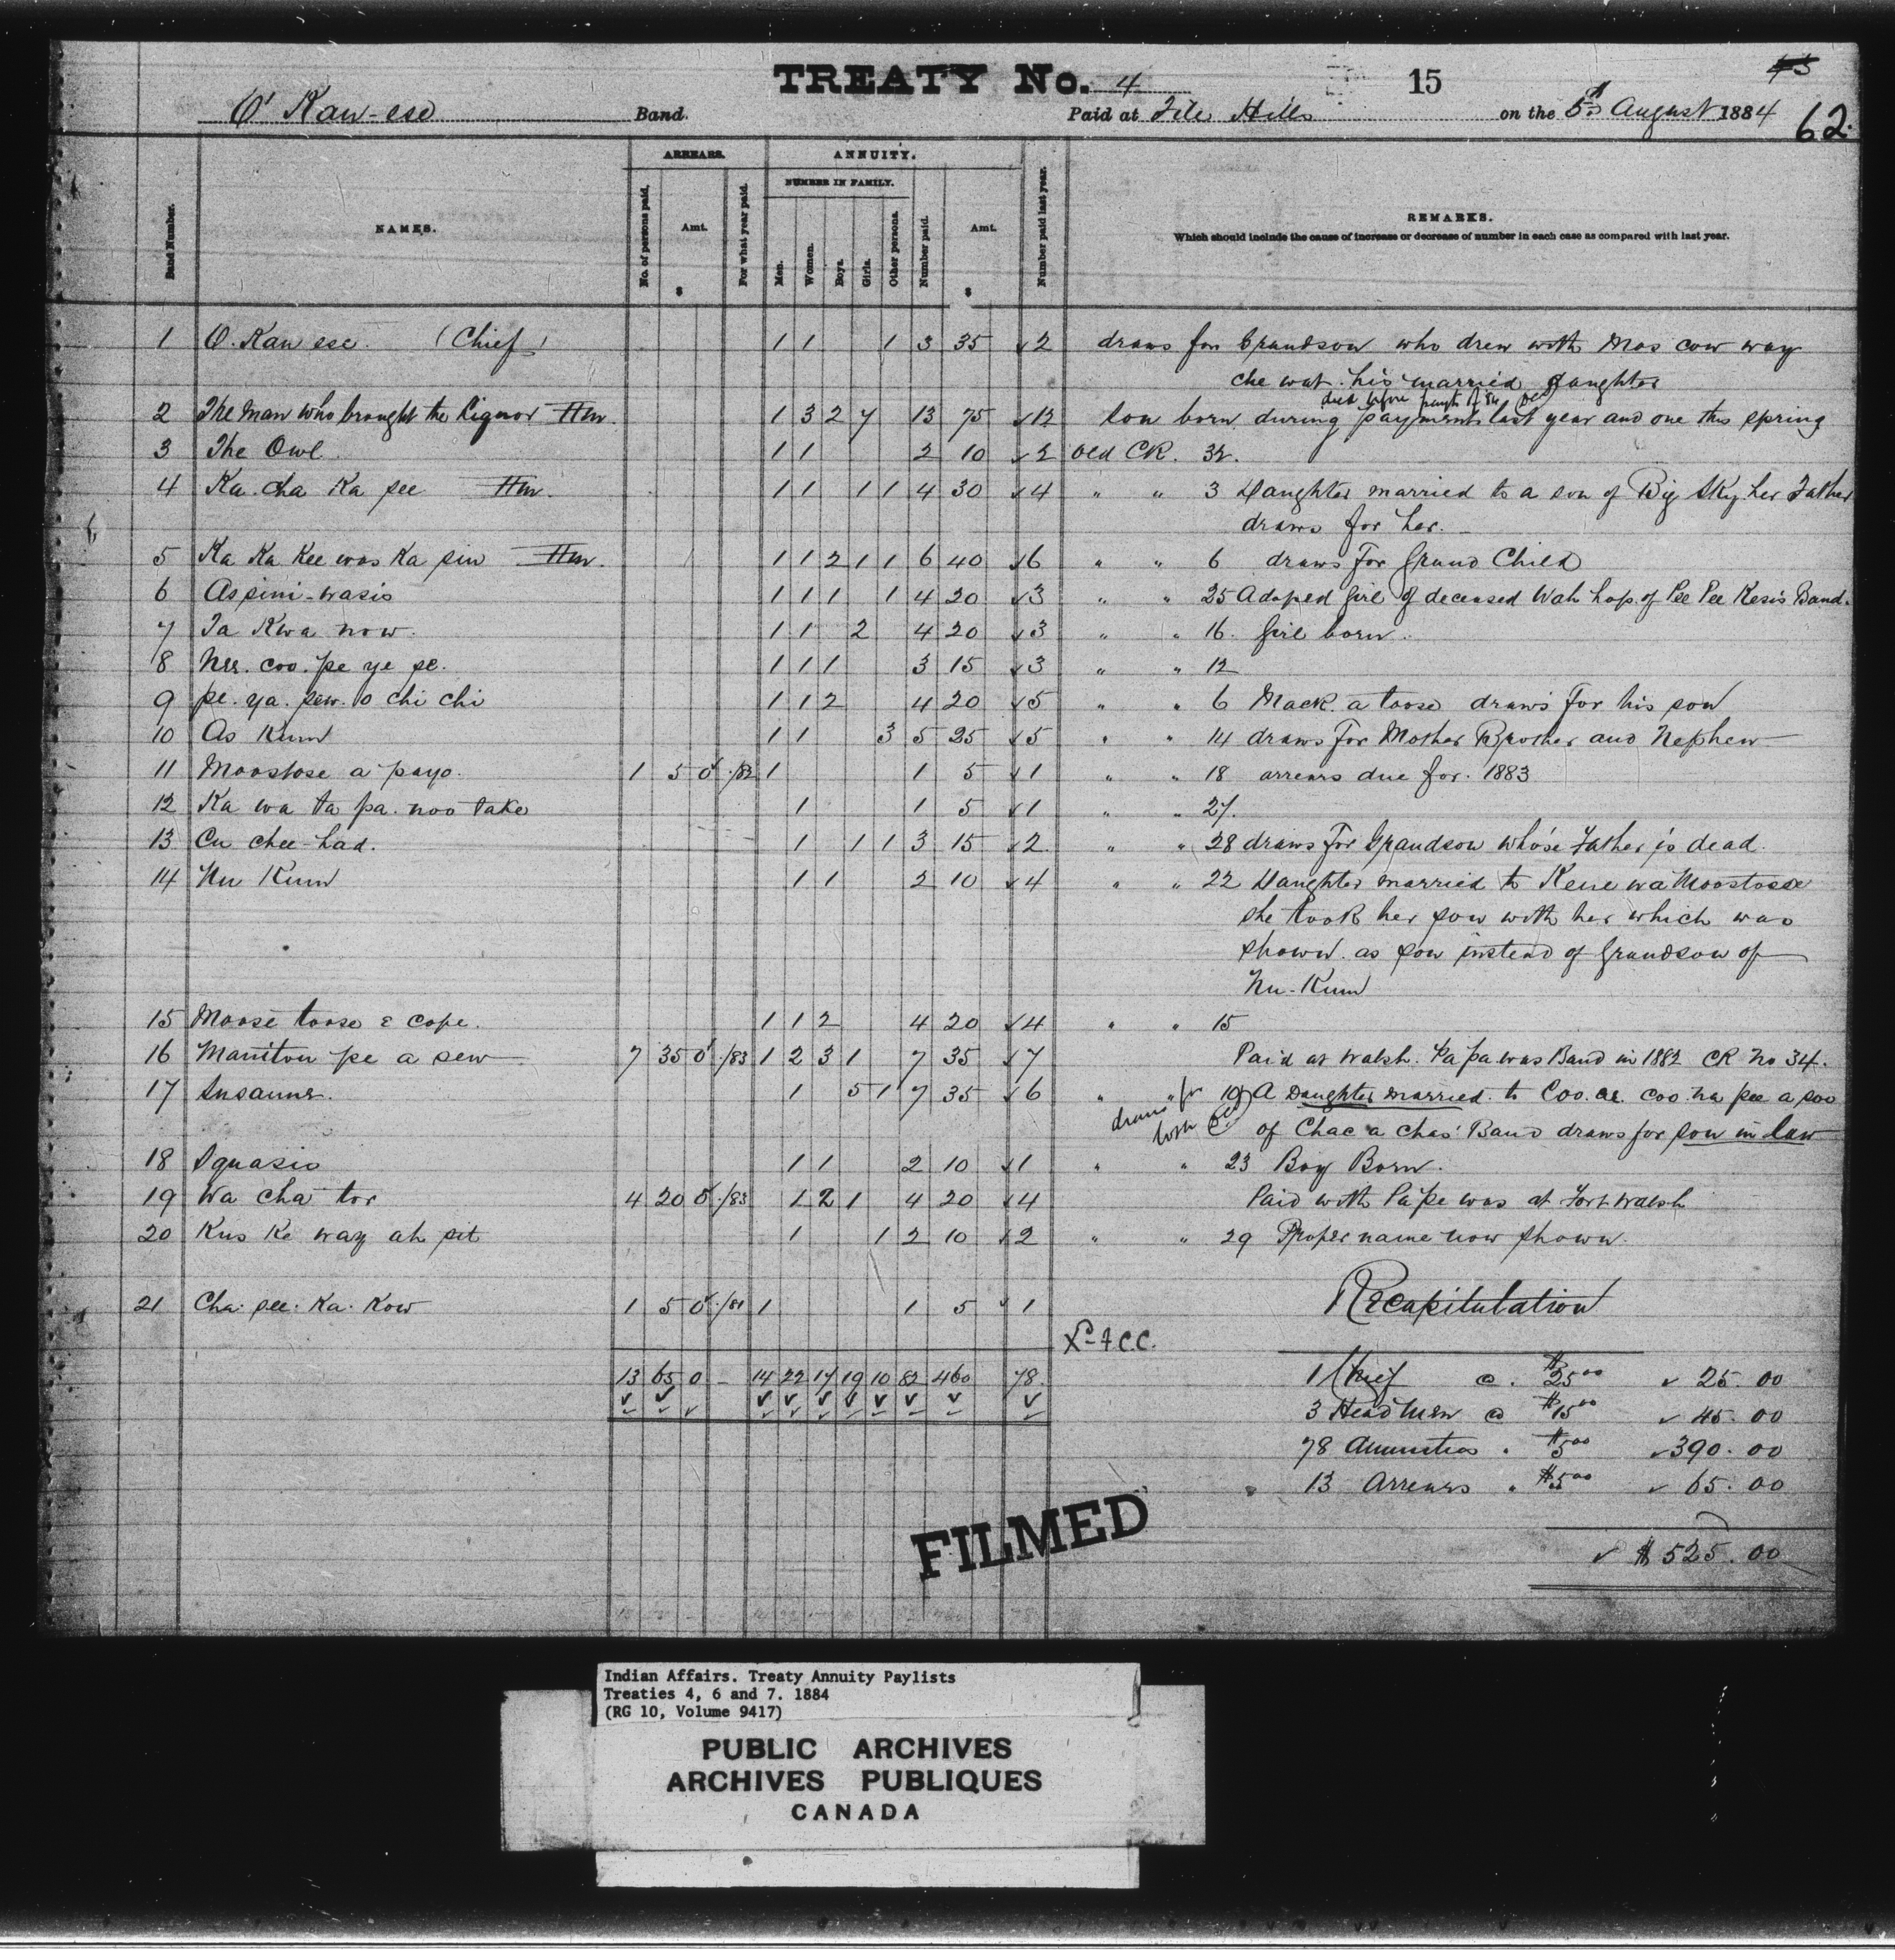 TREATY No. 4
15
62.
O' Kaw-ese Band.
Paid at File Hills on the 5th August 1884
Band Number.
NAMES.
ARREARS.
No. of persons paid.
Amt.
$
For what year paid.
ANNUITY.
NUMBER IN FAMILY.
Men.
Women.
Boys.
Girls.
Other persons.
Number paid.
Amt.
$
Number paid last year.
REMARKS.
Which should include the cause of increase or decrease of number in each case as compared with last year.
1 O. Kaw ese. (Chief) 1 1 1 3 35 ✓2 draws for Grandson who drew with Mos cow way
che wat his married daughter
2 The man who brought the Liquor Hm. 1 3 2 7 13 75 ✓12 son born during payments last year and one this spring
3 The Owl 1 1 2 10 ✓2 Old CR. 32.
4 Ka. cha Ka pee Hm. 1 1 1 1 4 30 ✓4 " " 3 Daughter married to a son of Big Sky her Father
draws for her.
5 Ka Ka Kee was Ka sin Hm. 1 1 2 1 1 6 40 ✓6 " " 6 draws For Grand Child
6 Aspini-wasis 1 1 1 1 4 20 ✓3 " " 25 Adoped Girl of deceased Wah hap. of Pee Pee Kesis Band.
7 Ta Kwa now. 1 1 2 4 20 ✓3 " " 16. Girl born.
8 Nee. coo. pe ye se. 1 1 1 3 15 ✓3 " " 12
9 pe. ya. sew. o chi chi 1 1 2 4 20 ✓5 " " 6 Mack. a toose draws for his son
10 As Kum 1 1 3 5 25 ✓5 " " 14 draws For Mother Brother and Nephew
11 Moostose a payo. 1 5 0 /82 1 1 5 ✓1 " " 18 arrears due for. 1883
12 Ka wa ta pa. noo take 1 1 5 ✓1 " " 27.
13 Cu chee-had. 1 1 1 3 15 ✓2 " " 28 draws For Grandson who's Father is dead
14 Nu Kum 1 1 2 10 ✓4 " " 22 Daughter married to Kene wa Moostoose
she took her son with her which was
shown as son instead of Grandson of
Nu-Kum
15 Moose toose & cope. 1 1 2 4 20 ✓4 " " 15
16 Maniton pe a sew 7 35 0 /83 1 2 3 1 7 35 ✓7 Paid at Walsh. Pa pa was Band in 1882 CR No 34.
17 Susanne. 1 5 1 7 35 ✓6 " " 10 A Daughter married to Coo. ee. coo. na pee a soo
draws for both
of Chac a chas' Band draws for son in law
18 Squasis 1 1 2 10 ✓1 " " 23 Boy Born.
19 Wa cha tor 4 20 0 /83 1 2 1 4 20 ✓4 Paid with Pa pe was at Fort Walsh
20 Kus Ke way ah sit 1 1 2 10 ✓2 " " 29 Proper name now shown.
21 Cha. see. Ka. Kow 1 5 0 /81 1 1 5 ✓1
Recapitulation
13 65 0 – 14 22 17 19 10 82 460 78.
1 Chief @ $25.00 ✓ 25.00
3 Head Men @ $15.00 ✓ 45.00
78 Annuities " $5.00 ✓390.00
" 13 Arrears " $5.00 ✓ 65.00
✓ $525.00
FILMED
Indian Affairs. Treaty Annuity Paylists
Treaties 4, 6 and 7. 1884
(RG 10, Volume 9417)
PUBLIC ARCHIVES
ARCHIVES PUBLIQUES
CANADA